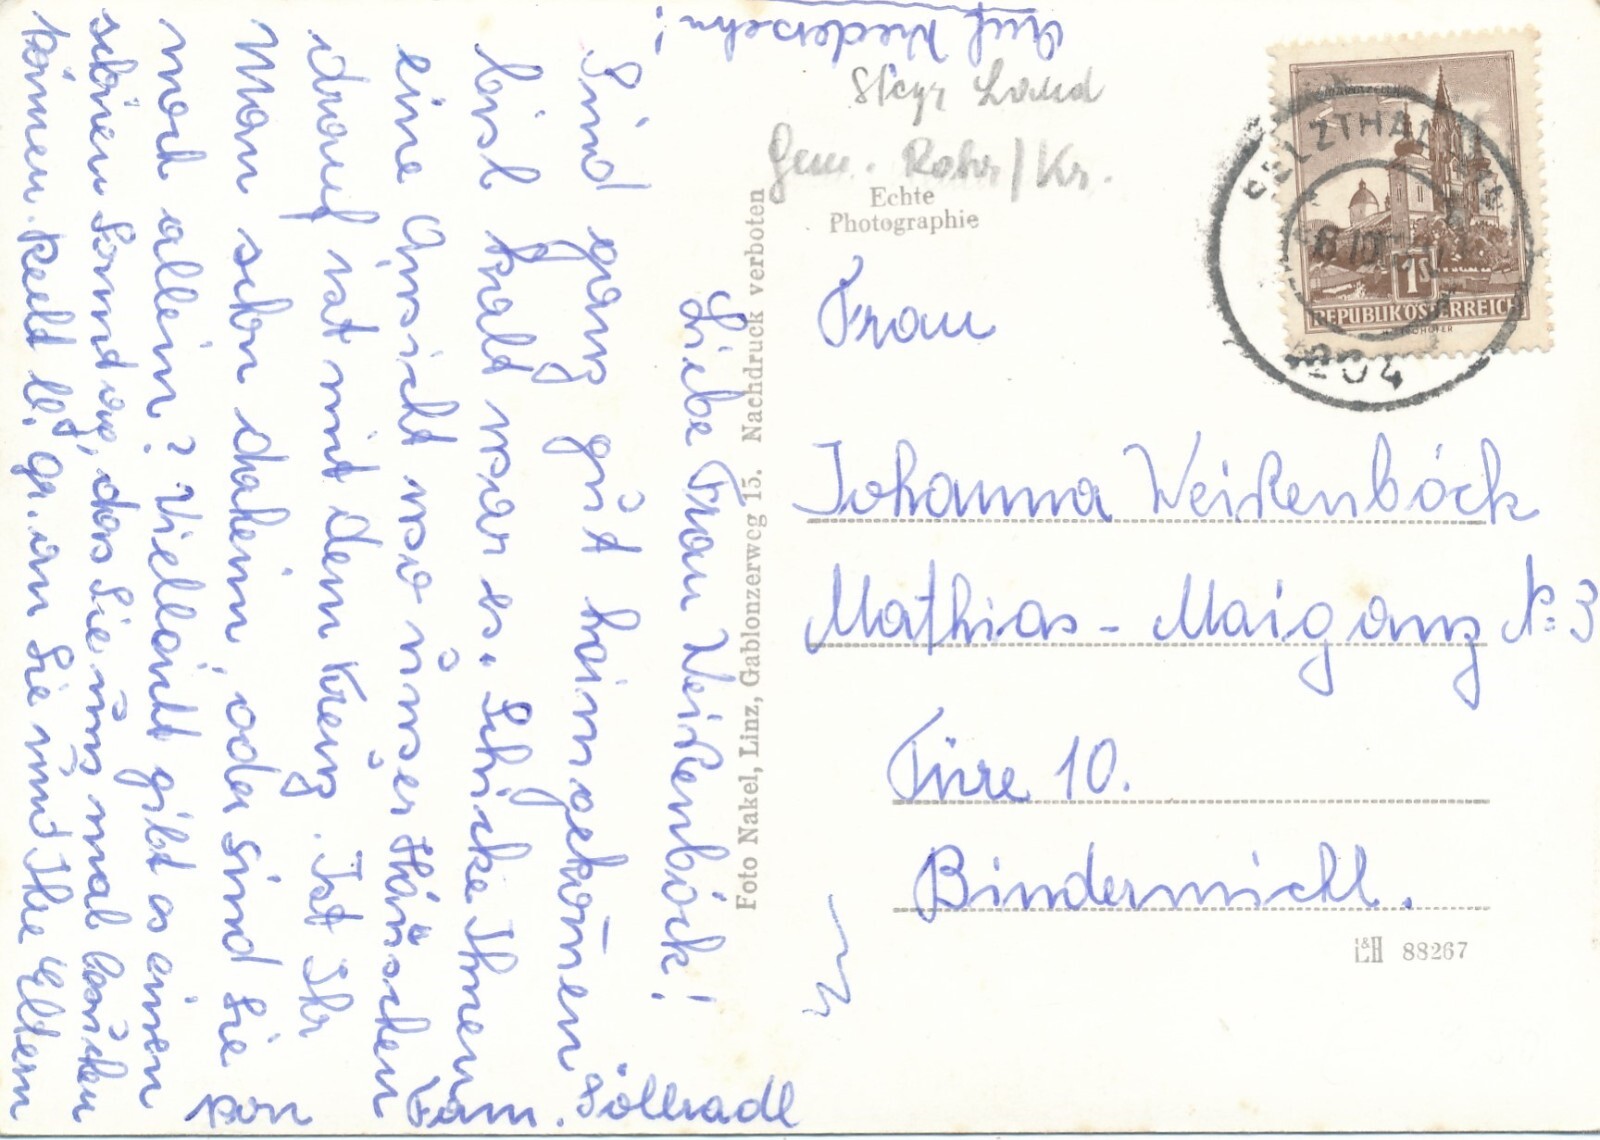 Liebe Frau Weißenböck!
Sind ganz gut haimgekom̄en
bisl kalt war es. Schicke Ihnen
eine Ansicht wo unser Häuschen
drauf ist mit dem Kreuz. Ist Ihr
Mann schon daheim, oder sind Sie
noch allein? Vielleicht gibt es einen
schönen Sonntag, das Sie uns mal besuchen
können. Recht ll. gr. an Sie und Ihre Eltern
von Fam. Söllradl
Auf Wiedersehn!
Steyr Land
Gem. Rohr/Kr.
Echte
Photographie
Foto Nakel, Linz, Gablonzerweg 15. Nachdruck verboten
REPUBLIK ÖSTERREICH
1S
SELZTHAL
Frau
Johanna Weißenböck
Mathias - Maigang N: 3
Türe 10.
Bindermichl.
L&H 88267